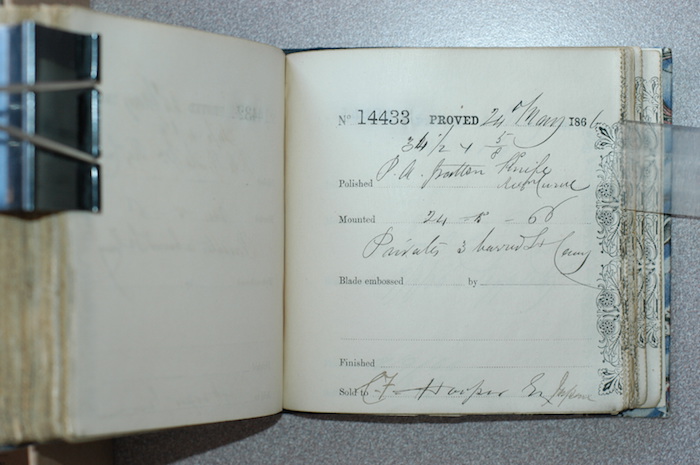 Nº 14433 PROVED 24 May 1866
34 1/2 + 5/8
Polished P. A. Grotten Knife
Mounted 24 - 5 - 66
Privates 3 barred Lt Cavy
Blade embossed by
Finished
Sold to C F Hooper Esq Japan